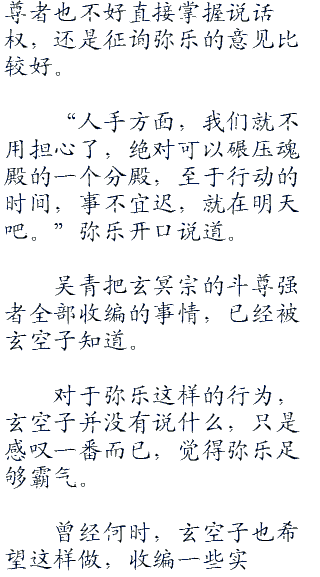 尊者也不好直接掌握说话
权，还是征询弥乐的意见比
较好。
“人手方面，我们就不
用担心了，绝对可以碾压魂
殿的一个分殿，至于行动的
时间，事不宜迟，就在明天
吧。”弥乐开口说道。
吴青把玄冥宗的斗尊强
者全部收编的事情，已经被
玄空子知道。
对于弥乐这样的行为，
玄空子并没有说什么，只是
感叹一番而已，觉得弥乐足
够霸气。
曾经何时，玄空子也希
望这样做，收编一些实